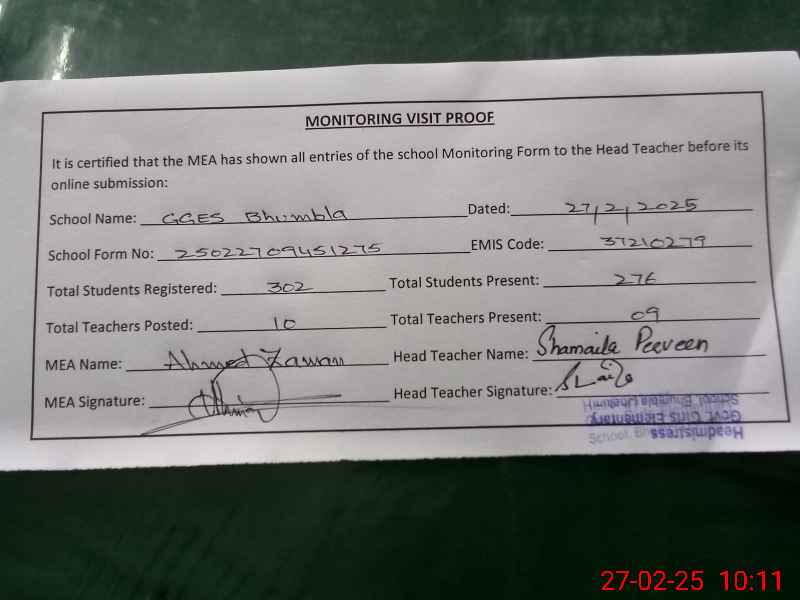 MONITORING VISIT PROOF
It is certified that the MEA has shown all entries of the school Monitoring Form to the Head Teacher before its
online submission:
School Name: GGES Bhumbla Dated: 27/2/2025
School Form No: 25022709451275 EMIS Code: 37210279
Total Students Registered: 302 Total Students Present: 276
Total Teachers Posted: 10 Total Teachers Present: 09
MEA Name: Ahmed Zaman Head Teacher Name: Shamaila Perveen
MEA Signature: Head Teacher Signature:
Headmistress
Govt. Girls Elementary
School
27-02-25 10:11